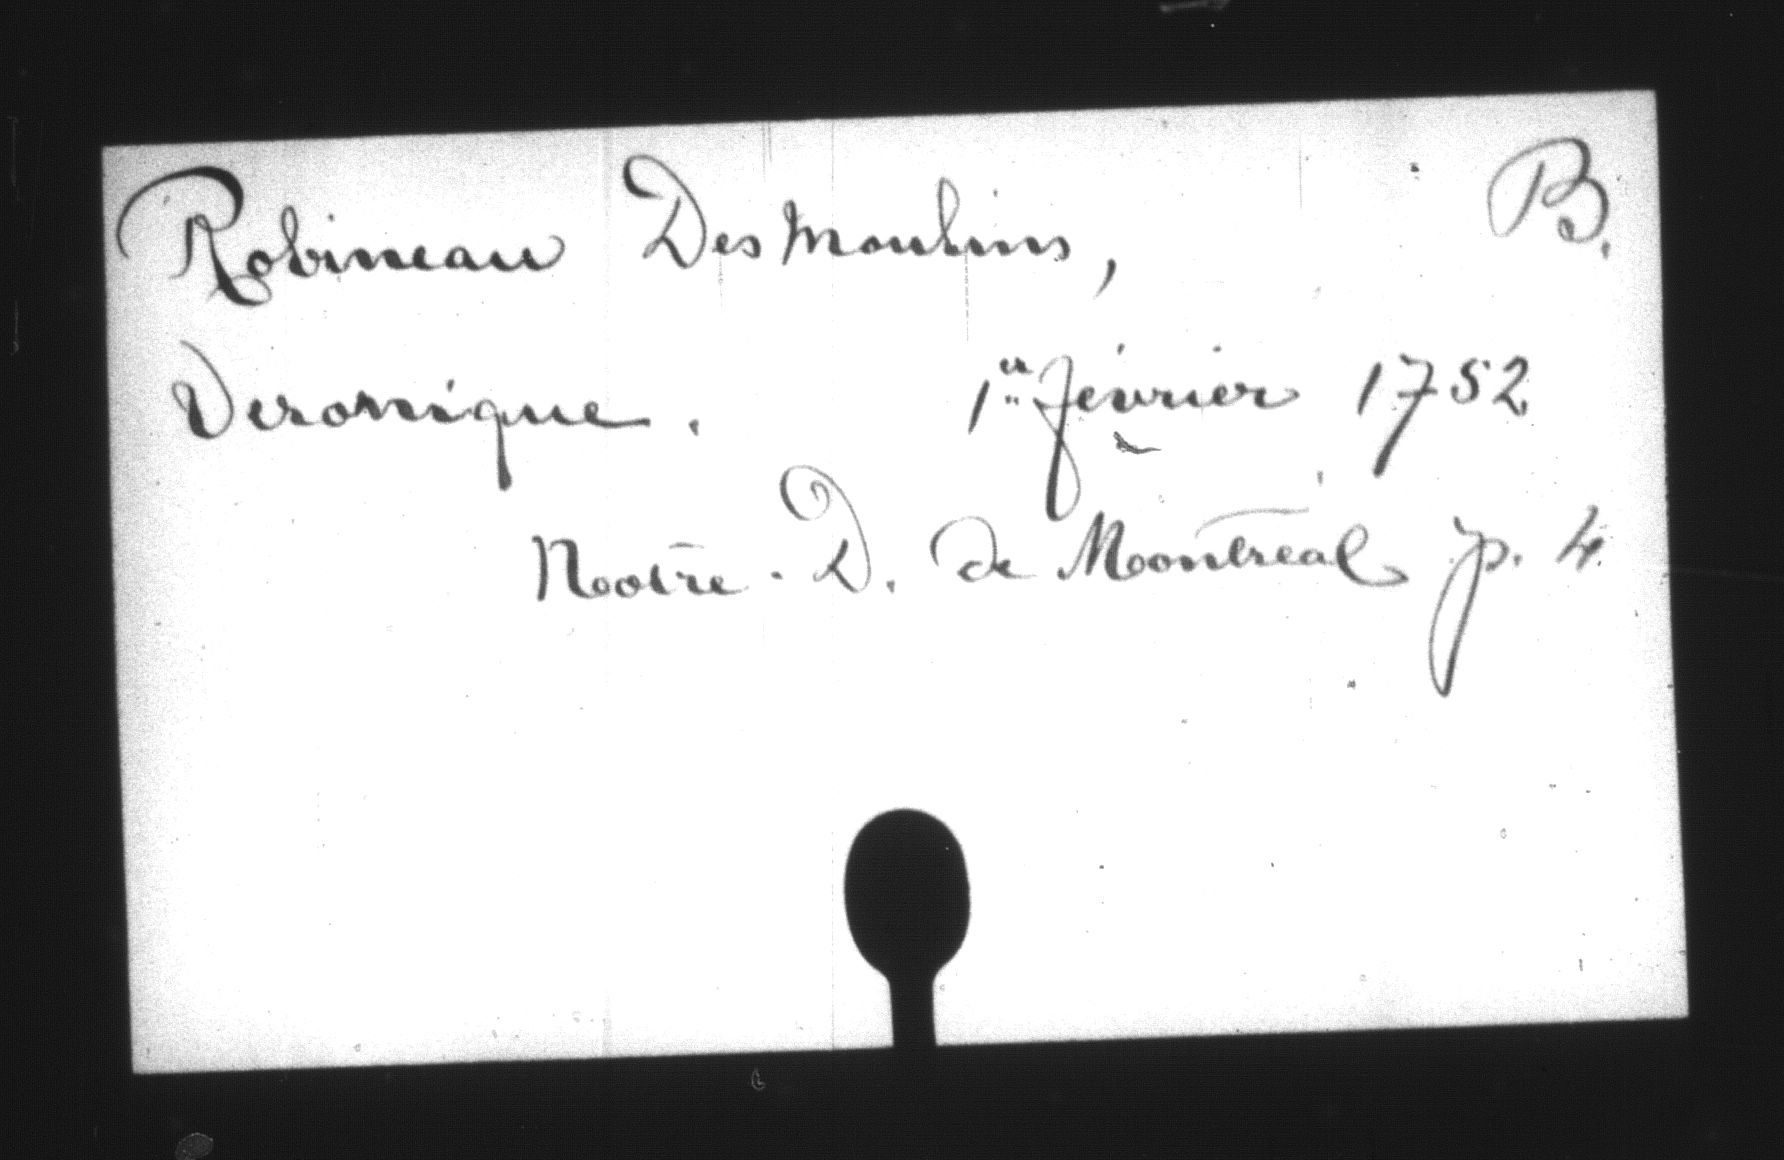 Robineau DesMoulins, B.
Veronique. 1er février 1752
Notre. D. de Montréal p. 4.